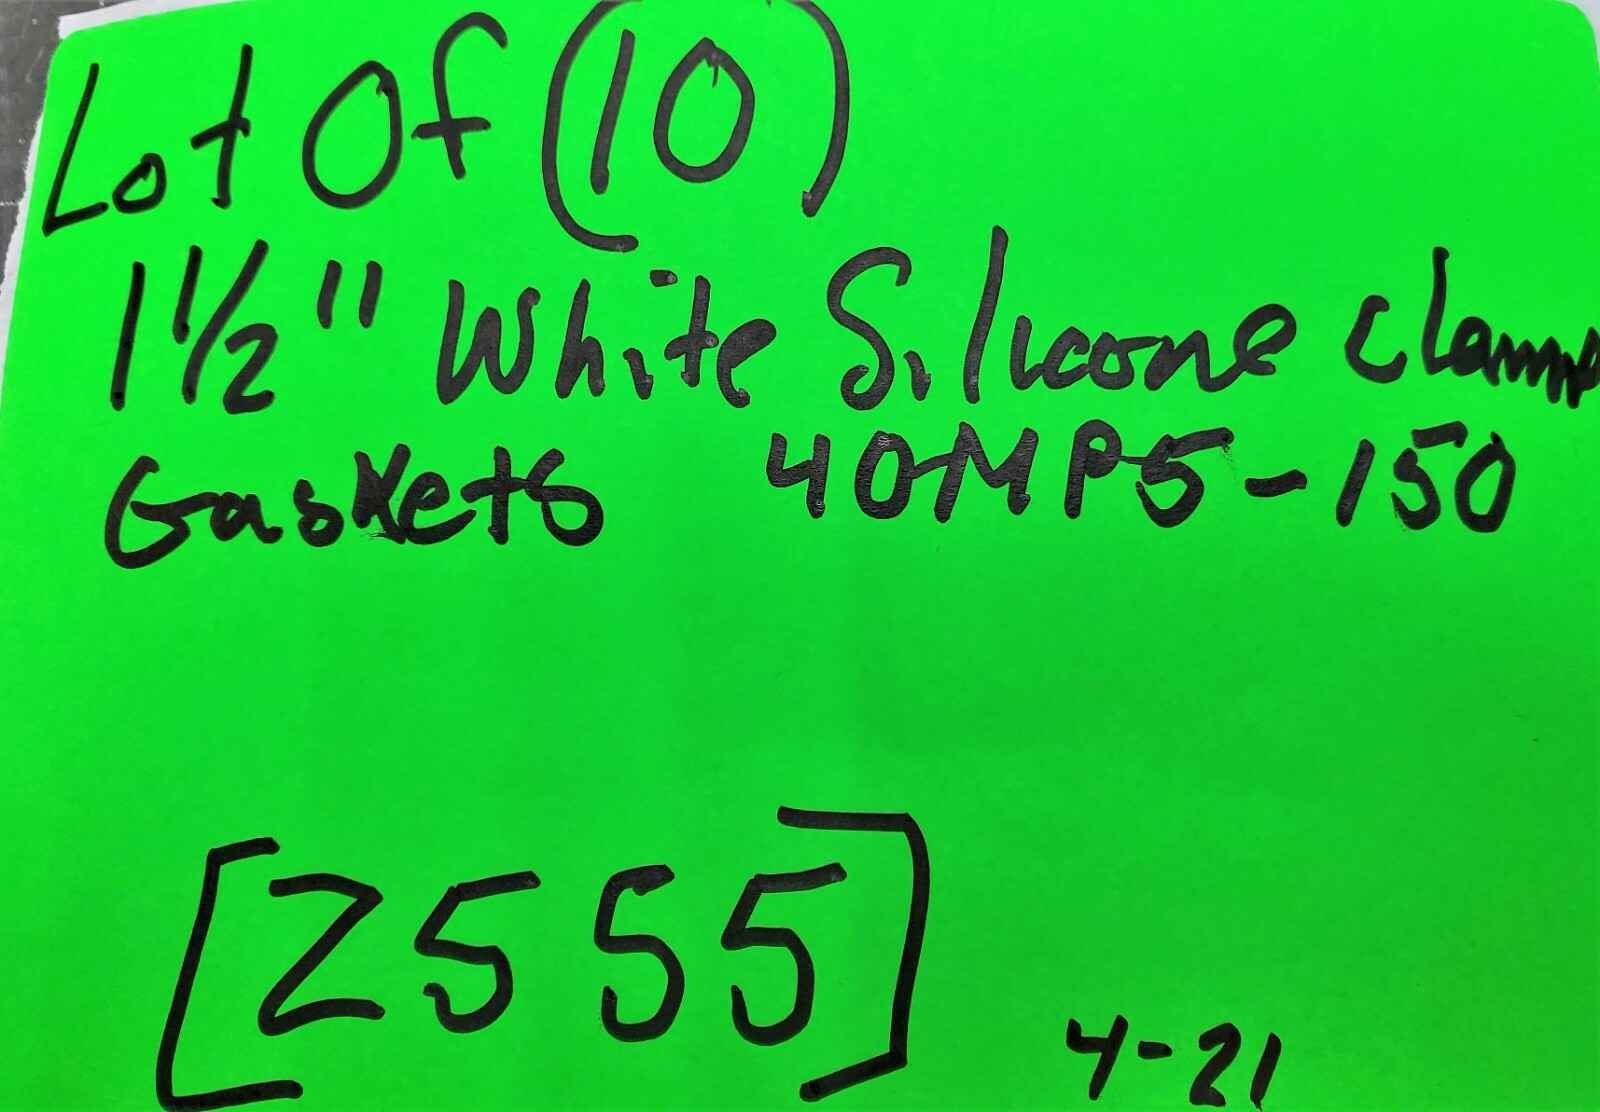 Lot Of (10)
1 1/2" White Silicone clamp
Gaskets 40MP5-150
[2555]
4-21